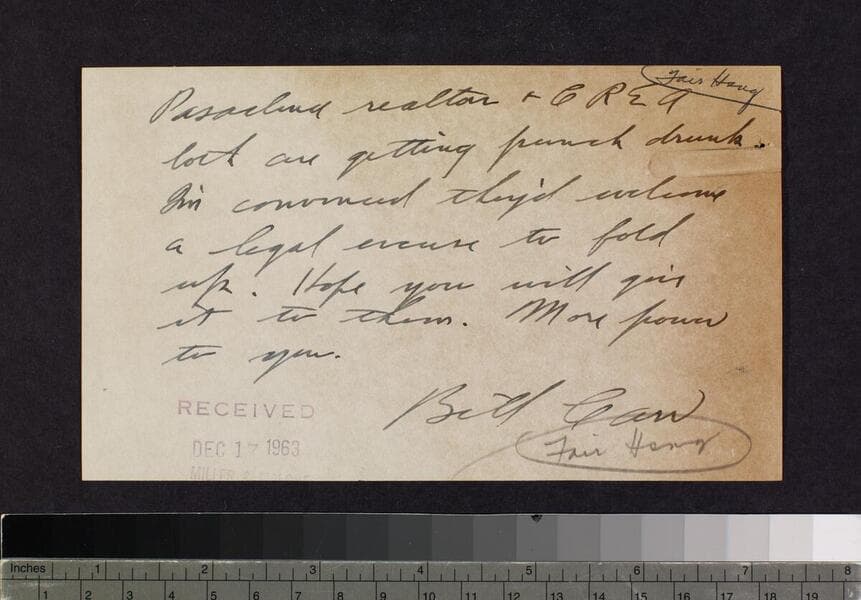 Fair Hsng
Pasadena realtor + C R E A
both are getting punch drunk.
I'm convinced they'd welcome
a legal excuse to fold
up. Hope you will give
it to them. More power
to you.
Bill Carr
Fair Hsng
RECEIVED
DEC 17 1963
MILLER
Inches 1 2 3 4 5 6 7 8
1 2 3 4 5 6 7 8 9 10 11 12 13 14 15 16 17 18 19